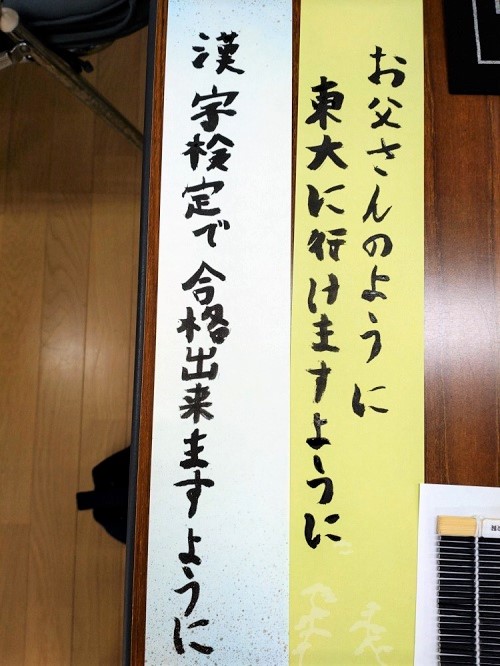 お父さんのように
東大に行けますように
漢字検定で合格出来ますように